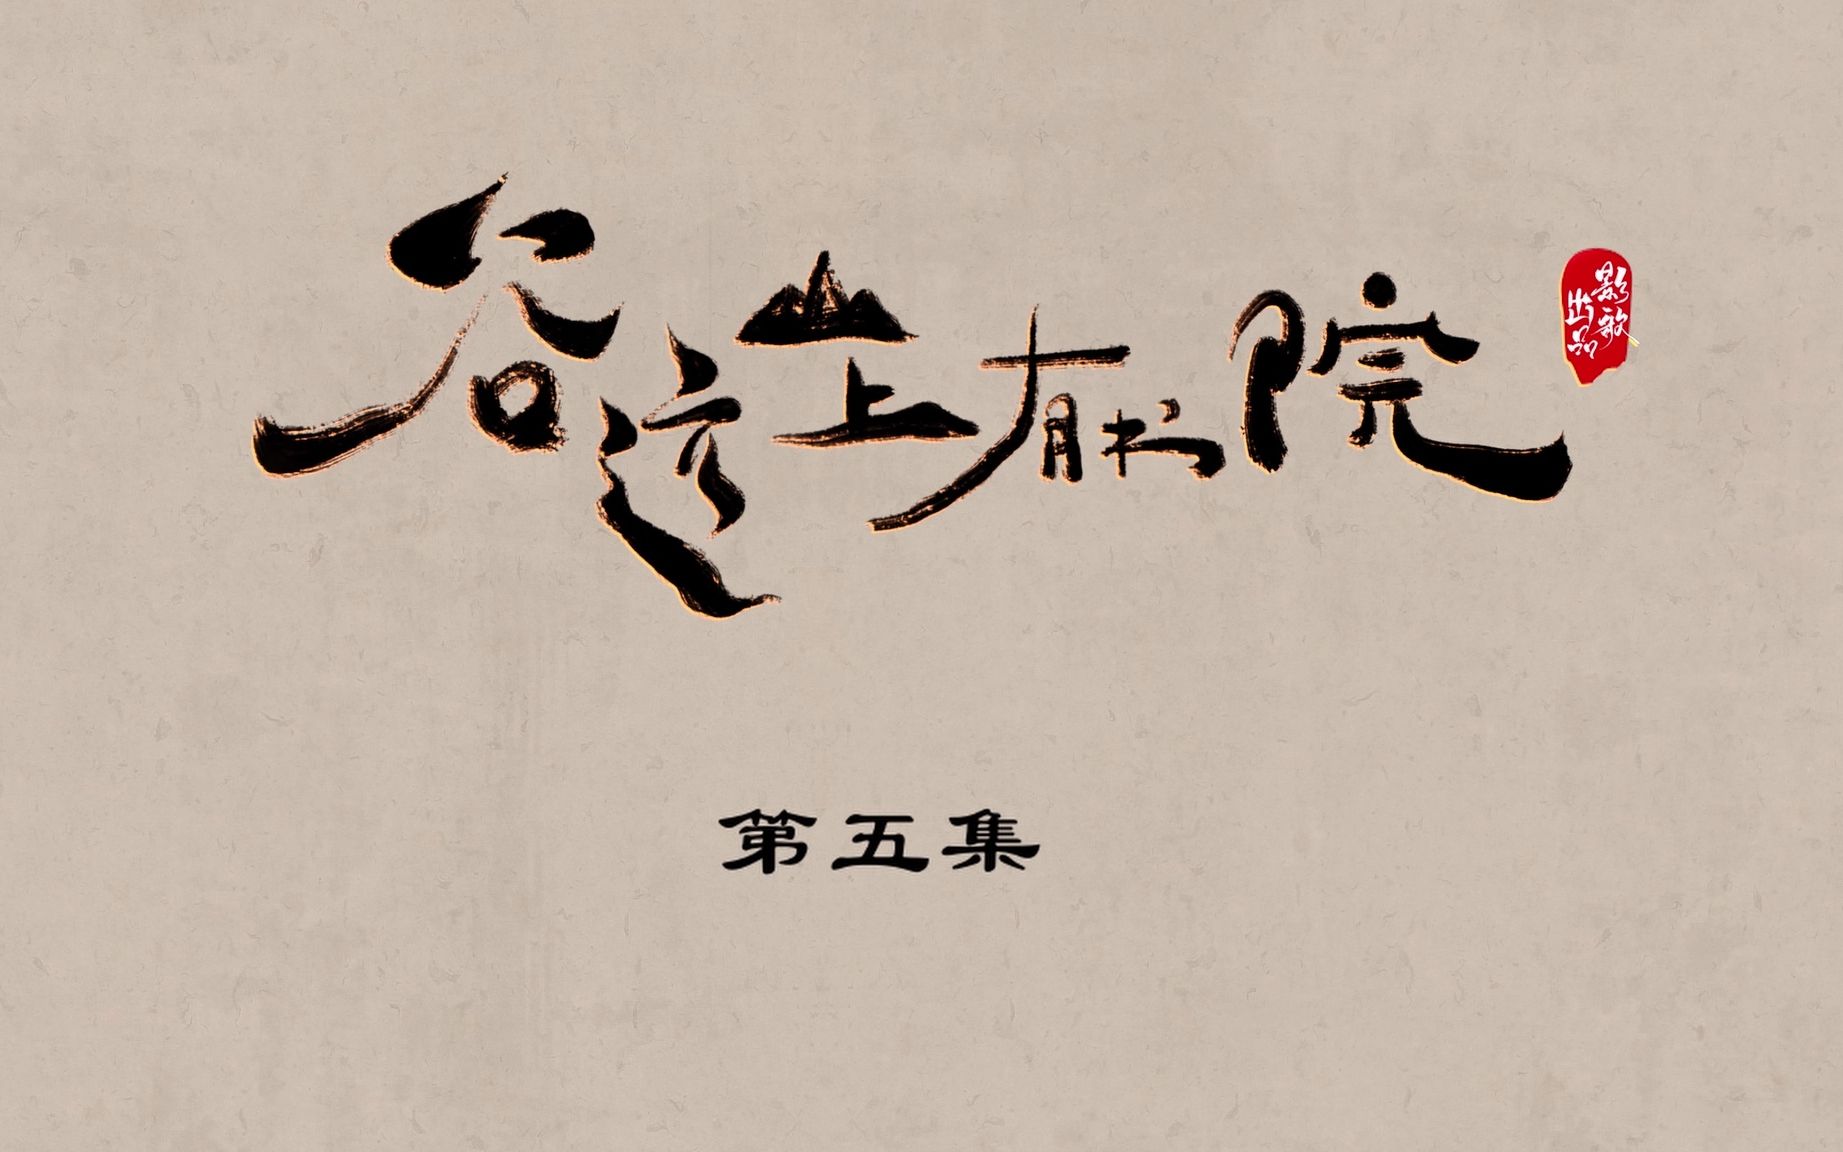 谷远山上有书院
影歌
出品
第五集